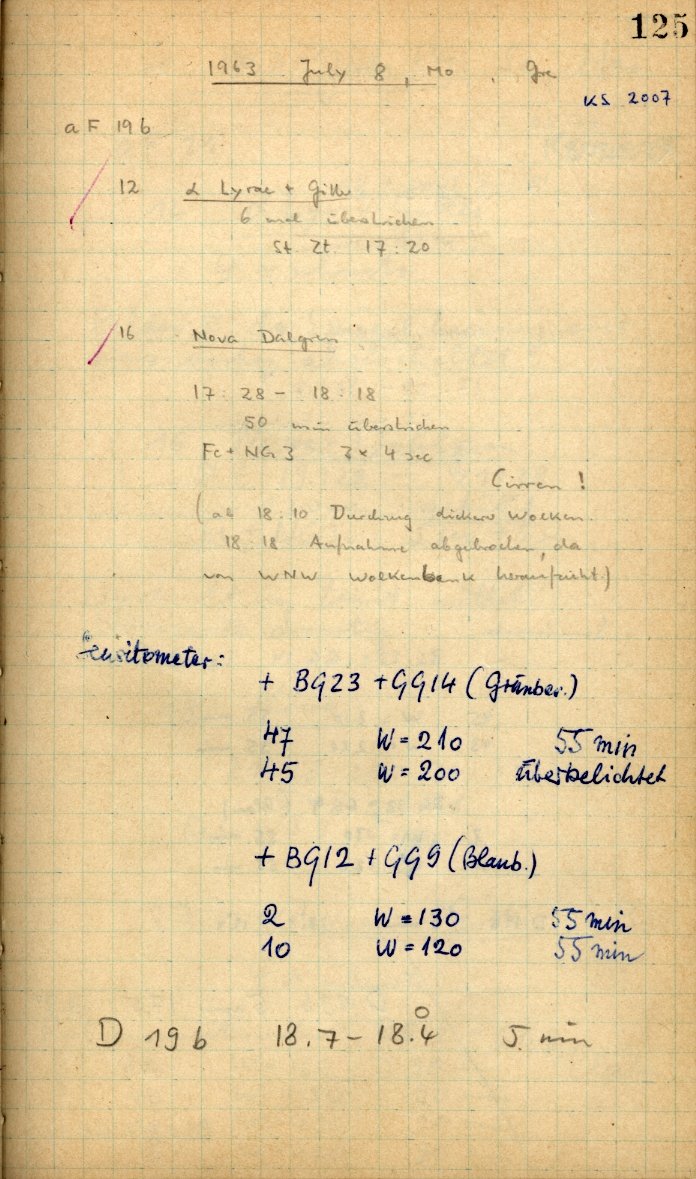 125
1963 July 8, Mo, Gre
KS 2007
a F 196
12 α Lyrae + Gitter
6 mal überstrichen
St. Zt. 17:20
16 Nova Dalgren
17:28 - 18:18
50 min überstrichen
Fc + NG 3 3 x 4 sec
Cirren!
(ab 18:10 Durchzug dickerer Wolken.
18:18 Aufnahme abgebrochen, da
von WNW Wolkenbank heraufzieht.)
Sensitometer:
+ BG23 + GG14 (Grünber.)
47 W = 210 55 min
45 W = 200 überbelichtet
+ BG12 + GG9 (Blaub.)
2 W = 130 55 min
10 W = 120 55 min
D 196 18.7 - 18.4° 5 min